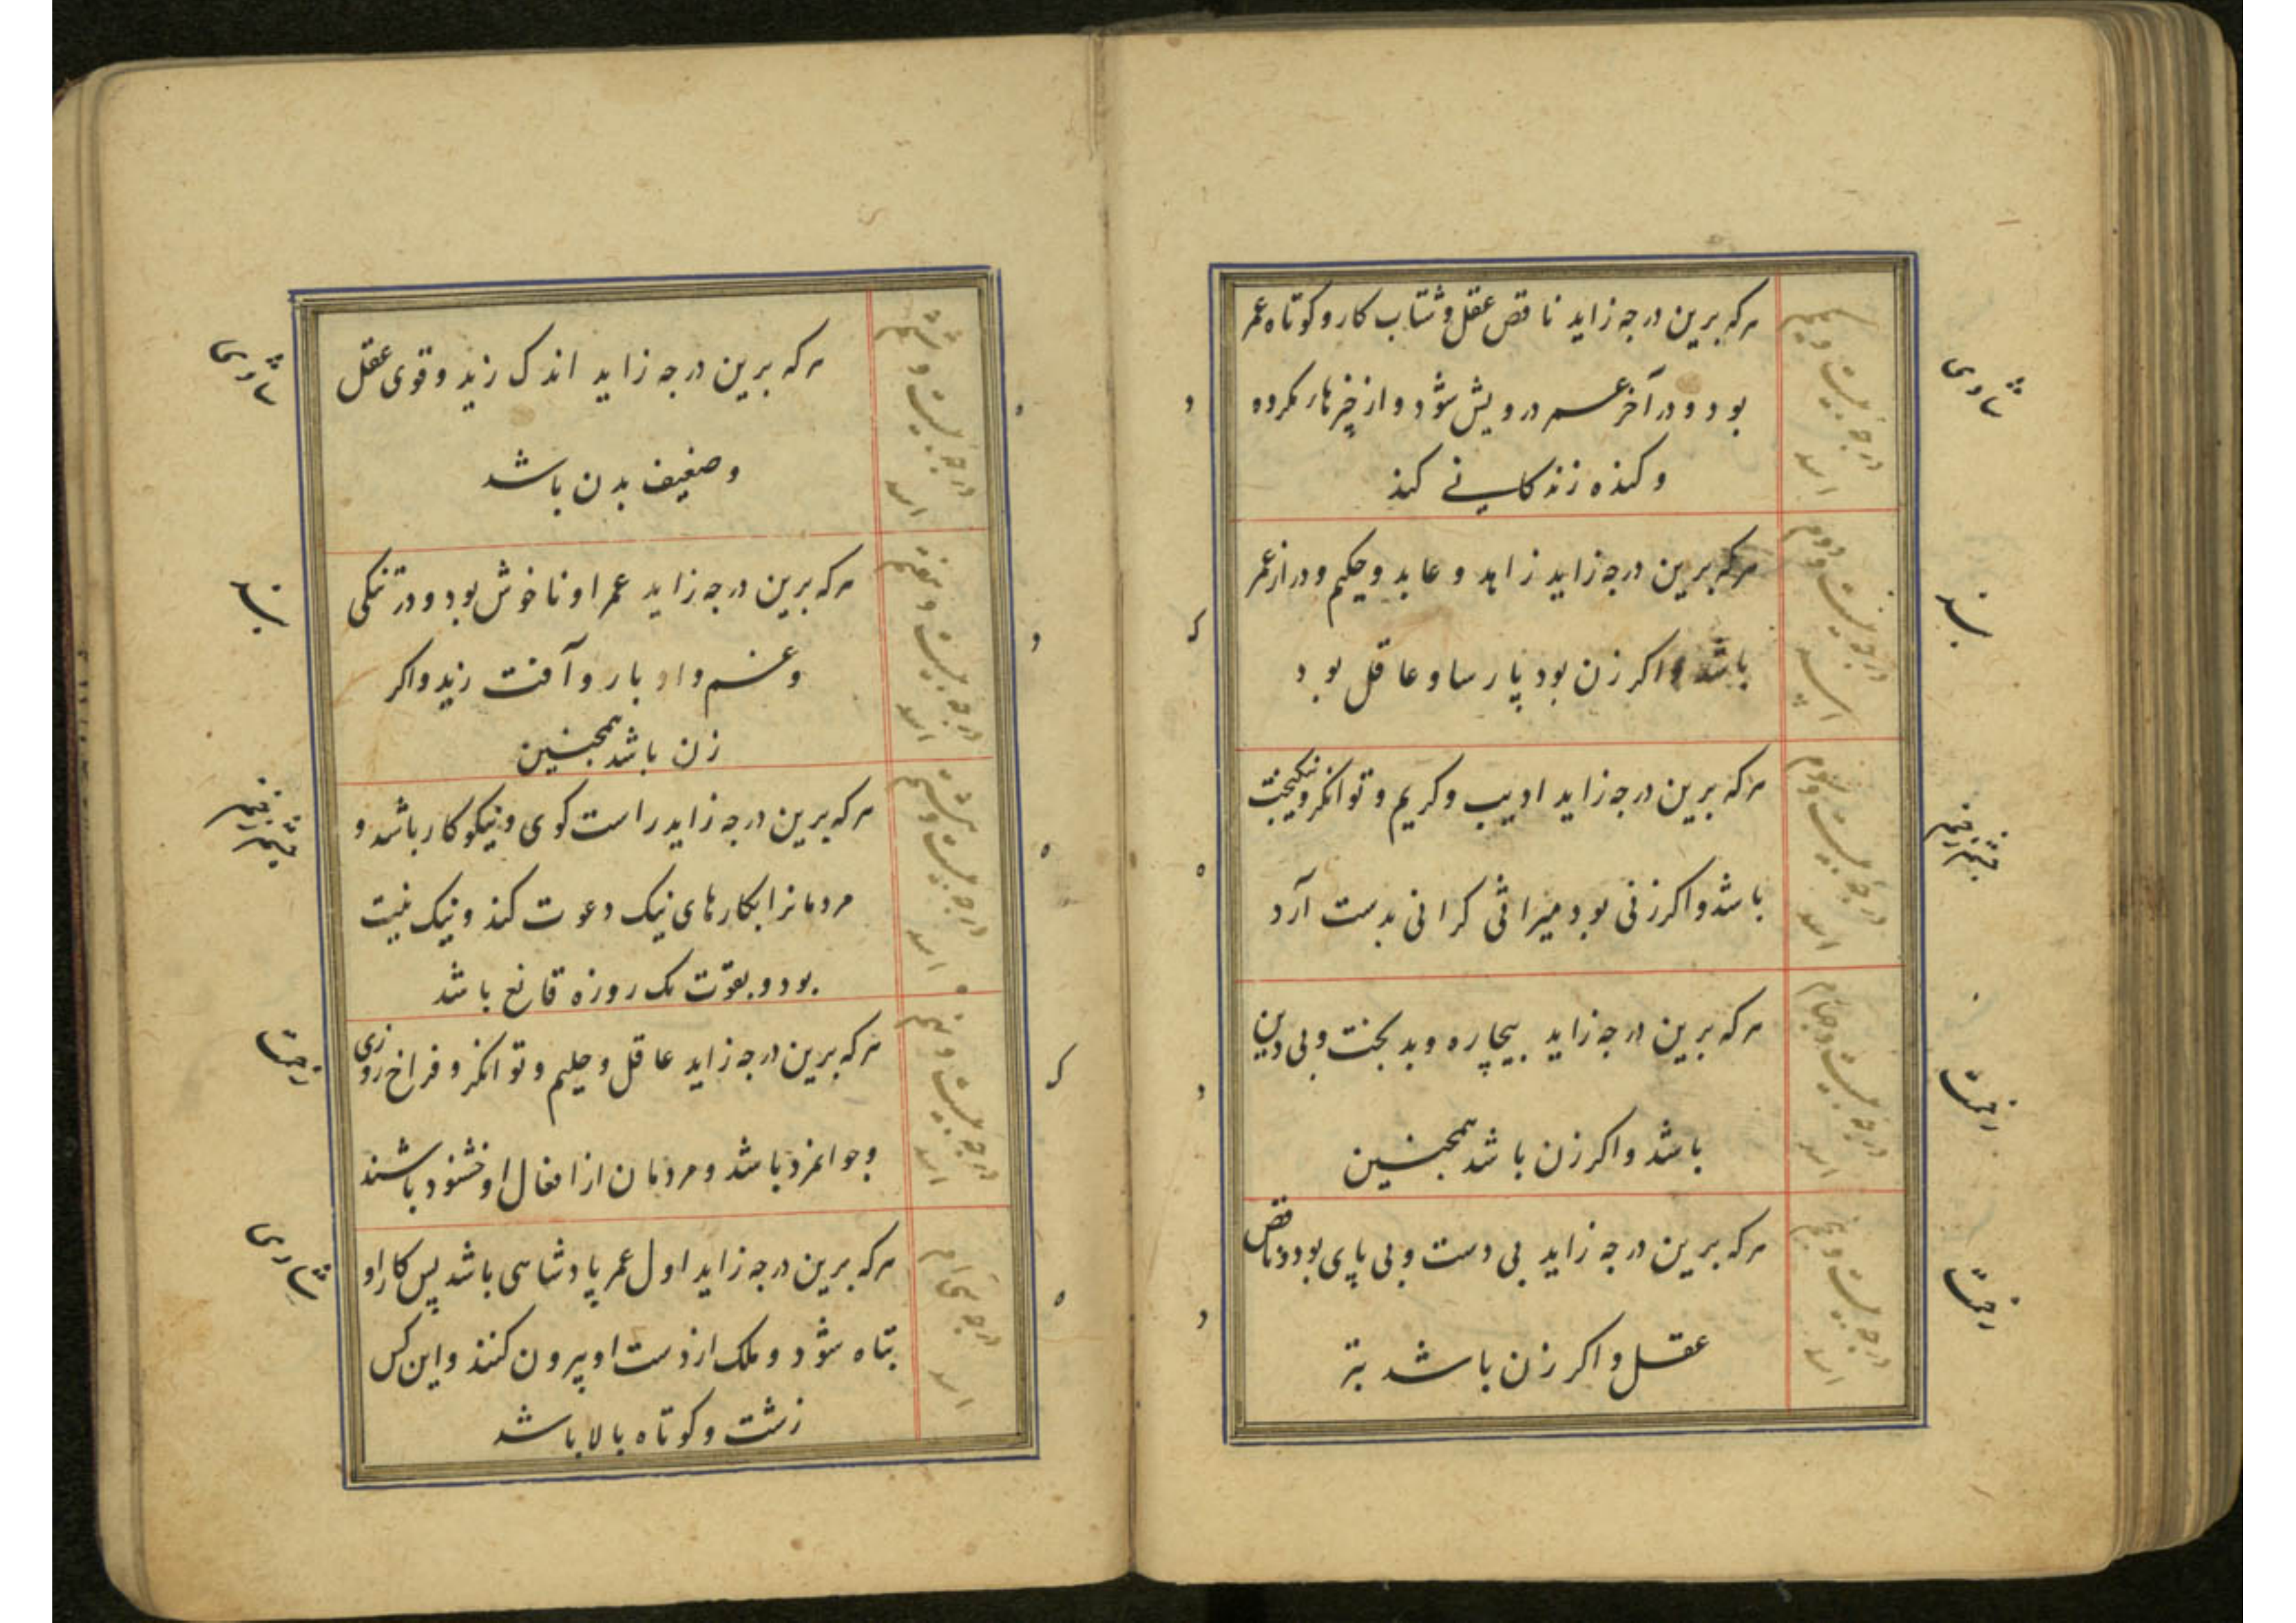 درجه بیست و یکم
اسد
هرکه برین درجه زاید ناقص عقل و شتاب کار و کوتاه عمر
بود و در آخر عمر درویش شود و از چیزهاء کرده
و کنده زندگانی کند
درجه بیست و دوم
اسد
هرکه برین درجه زاید زاهد و عابد و حکیم و دراز عمر
باشد و اکر زن بود پارسا و عاقل بود
درجه بیست و سوم
اسد
هرکه برین درجه زاید ادیب و کریم و توانکر و نیکبخت
باشد و اکر زنی بود میراثی کرانی بدست آرد
درجه بیست و چهارم
اسد
هرکه برین درجه زاید بیچاره و بدبخت و بی دین
باشد و اکر زن باشد همچنین
درجه بیست و پنجم
اسد
هرکه برین درجه زاید بی دست و بی پای بود و ناقص
عقل و اکر زن باشد بتر
درجه بیست و ششم
اسد
هرکه برین درجه زاید اندک زید و قوی عقل
و ضعیف بدن باشد
درجه بیست و هفتم
اسد
هرکه برین درجه زاید عمر او ناخوش بود و در تنکی
و غم و ادبار و آفت زید و اکر
زن باشد همچنین
درجه بیست و هشتم
اسد
هرکه برین درجه زاید راست کوی و نیکوکار باشد و
مردمانرا بکارهای نیک دعوت کند و نیک نیت
بود و بقوت یک روزه قانع باشد
درجه بیست و نهم
اسد
هرکه برین درجه زاید عاقل و حلیم و توانکر و فراخ روزی
و جوانمرد باشد و مردمان از افعال او خشنود باشند
درجه سی ام
اسد
هرکه برین درجه زاید اول عمر پادشاهی باشد پس کار او
تباه شود و ملک از دست او بیرون کنند و این کس
زشت و کوتاه بالا باشد